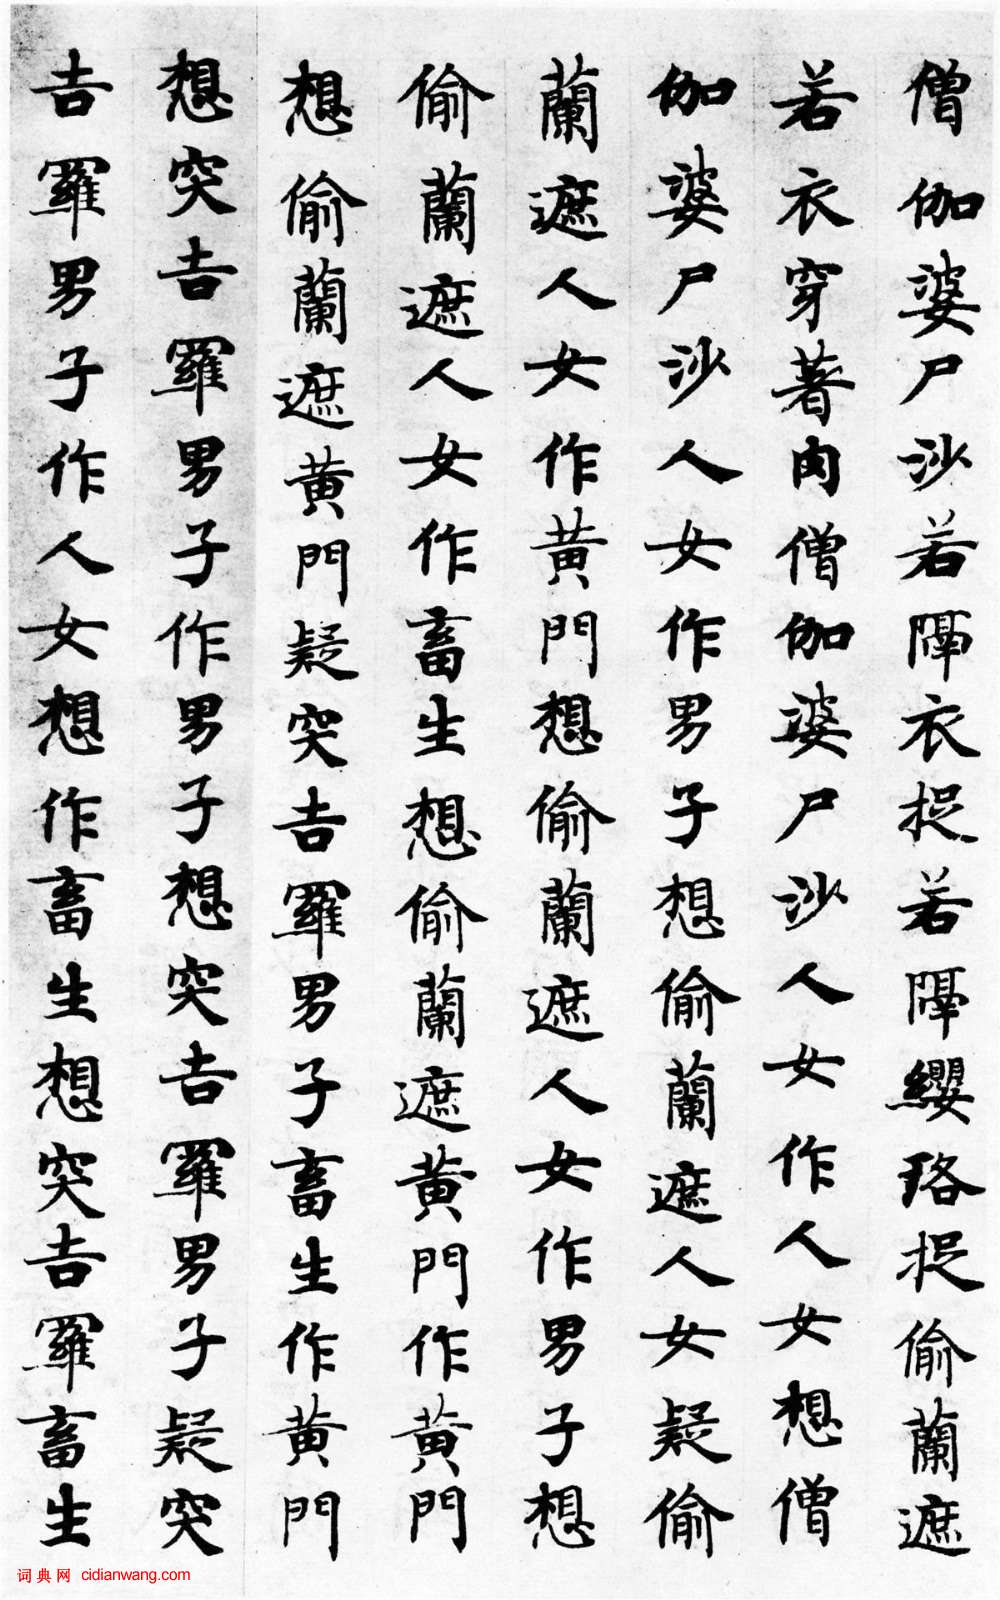 僧伽婆尸沙若障衣捉若障纓珞捉偷蘭遮
若衣穿著肉僧伽婆尸沙人女作人女想僧
伽婆尸沙人女作男子想偷蘭遮人女疑偷
蘭遮人女作黃門想偷蘭遮人女作男子想
偷蘭遮人女作畜生想偷蘭遮黃門作黃門
想偷蘭遮黃門疑突吉羅男子畜生作黃門
想突吉羅男子作男子想突吉羅男子疑突
吉羅男子作人女想作畜生想突吉羅畜生
词典网 cidianwang.com